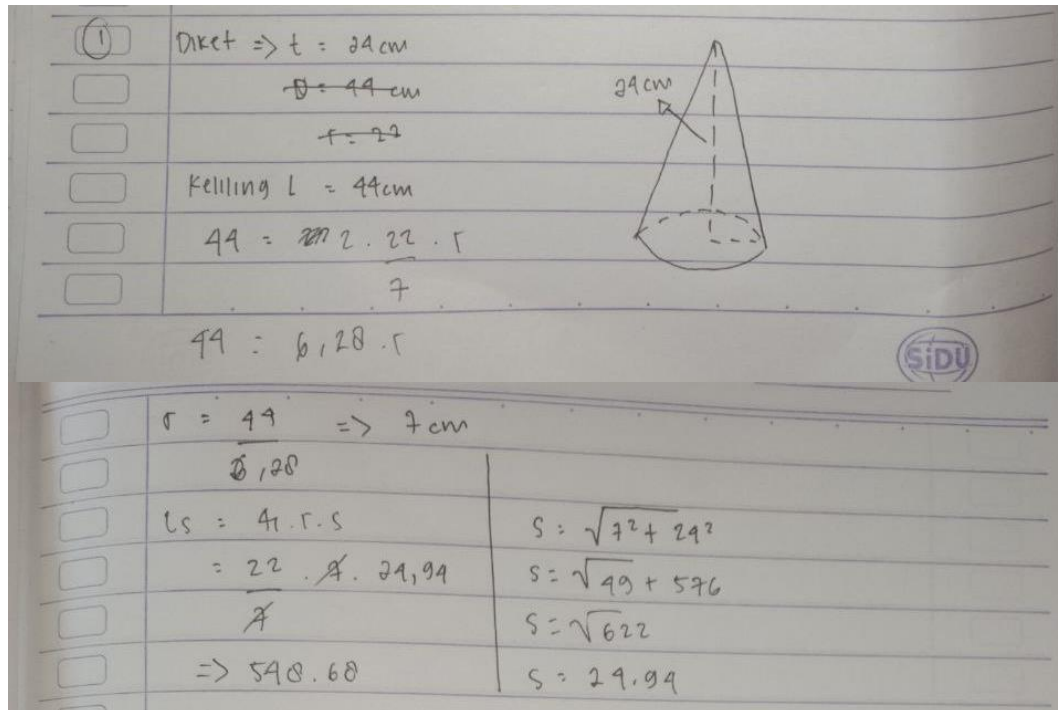 1
Diket => t = 24 cm
D = 44 cm
r = 22
24 cm
Keliling L = 44 cm
44 = 2 . 22/7 . r
44 = 6,28 . r
SiDU
r = 44/6,28 => 7 cm
Ls = π . r . s
= 22/7 . 7 . 24,94
=> 548.68
s = √7² + 24²
s = √49 + 576
s = √622
s = 24.94